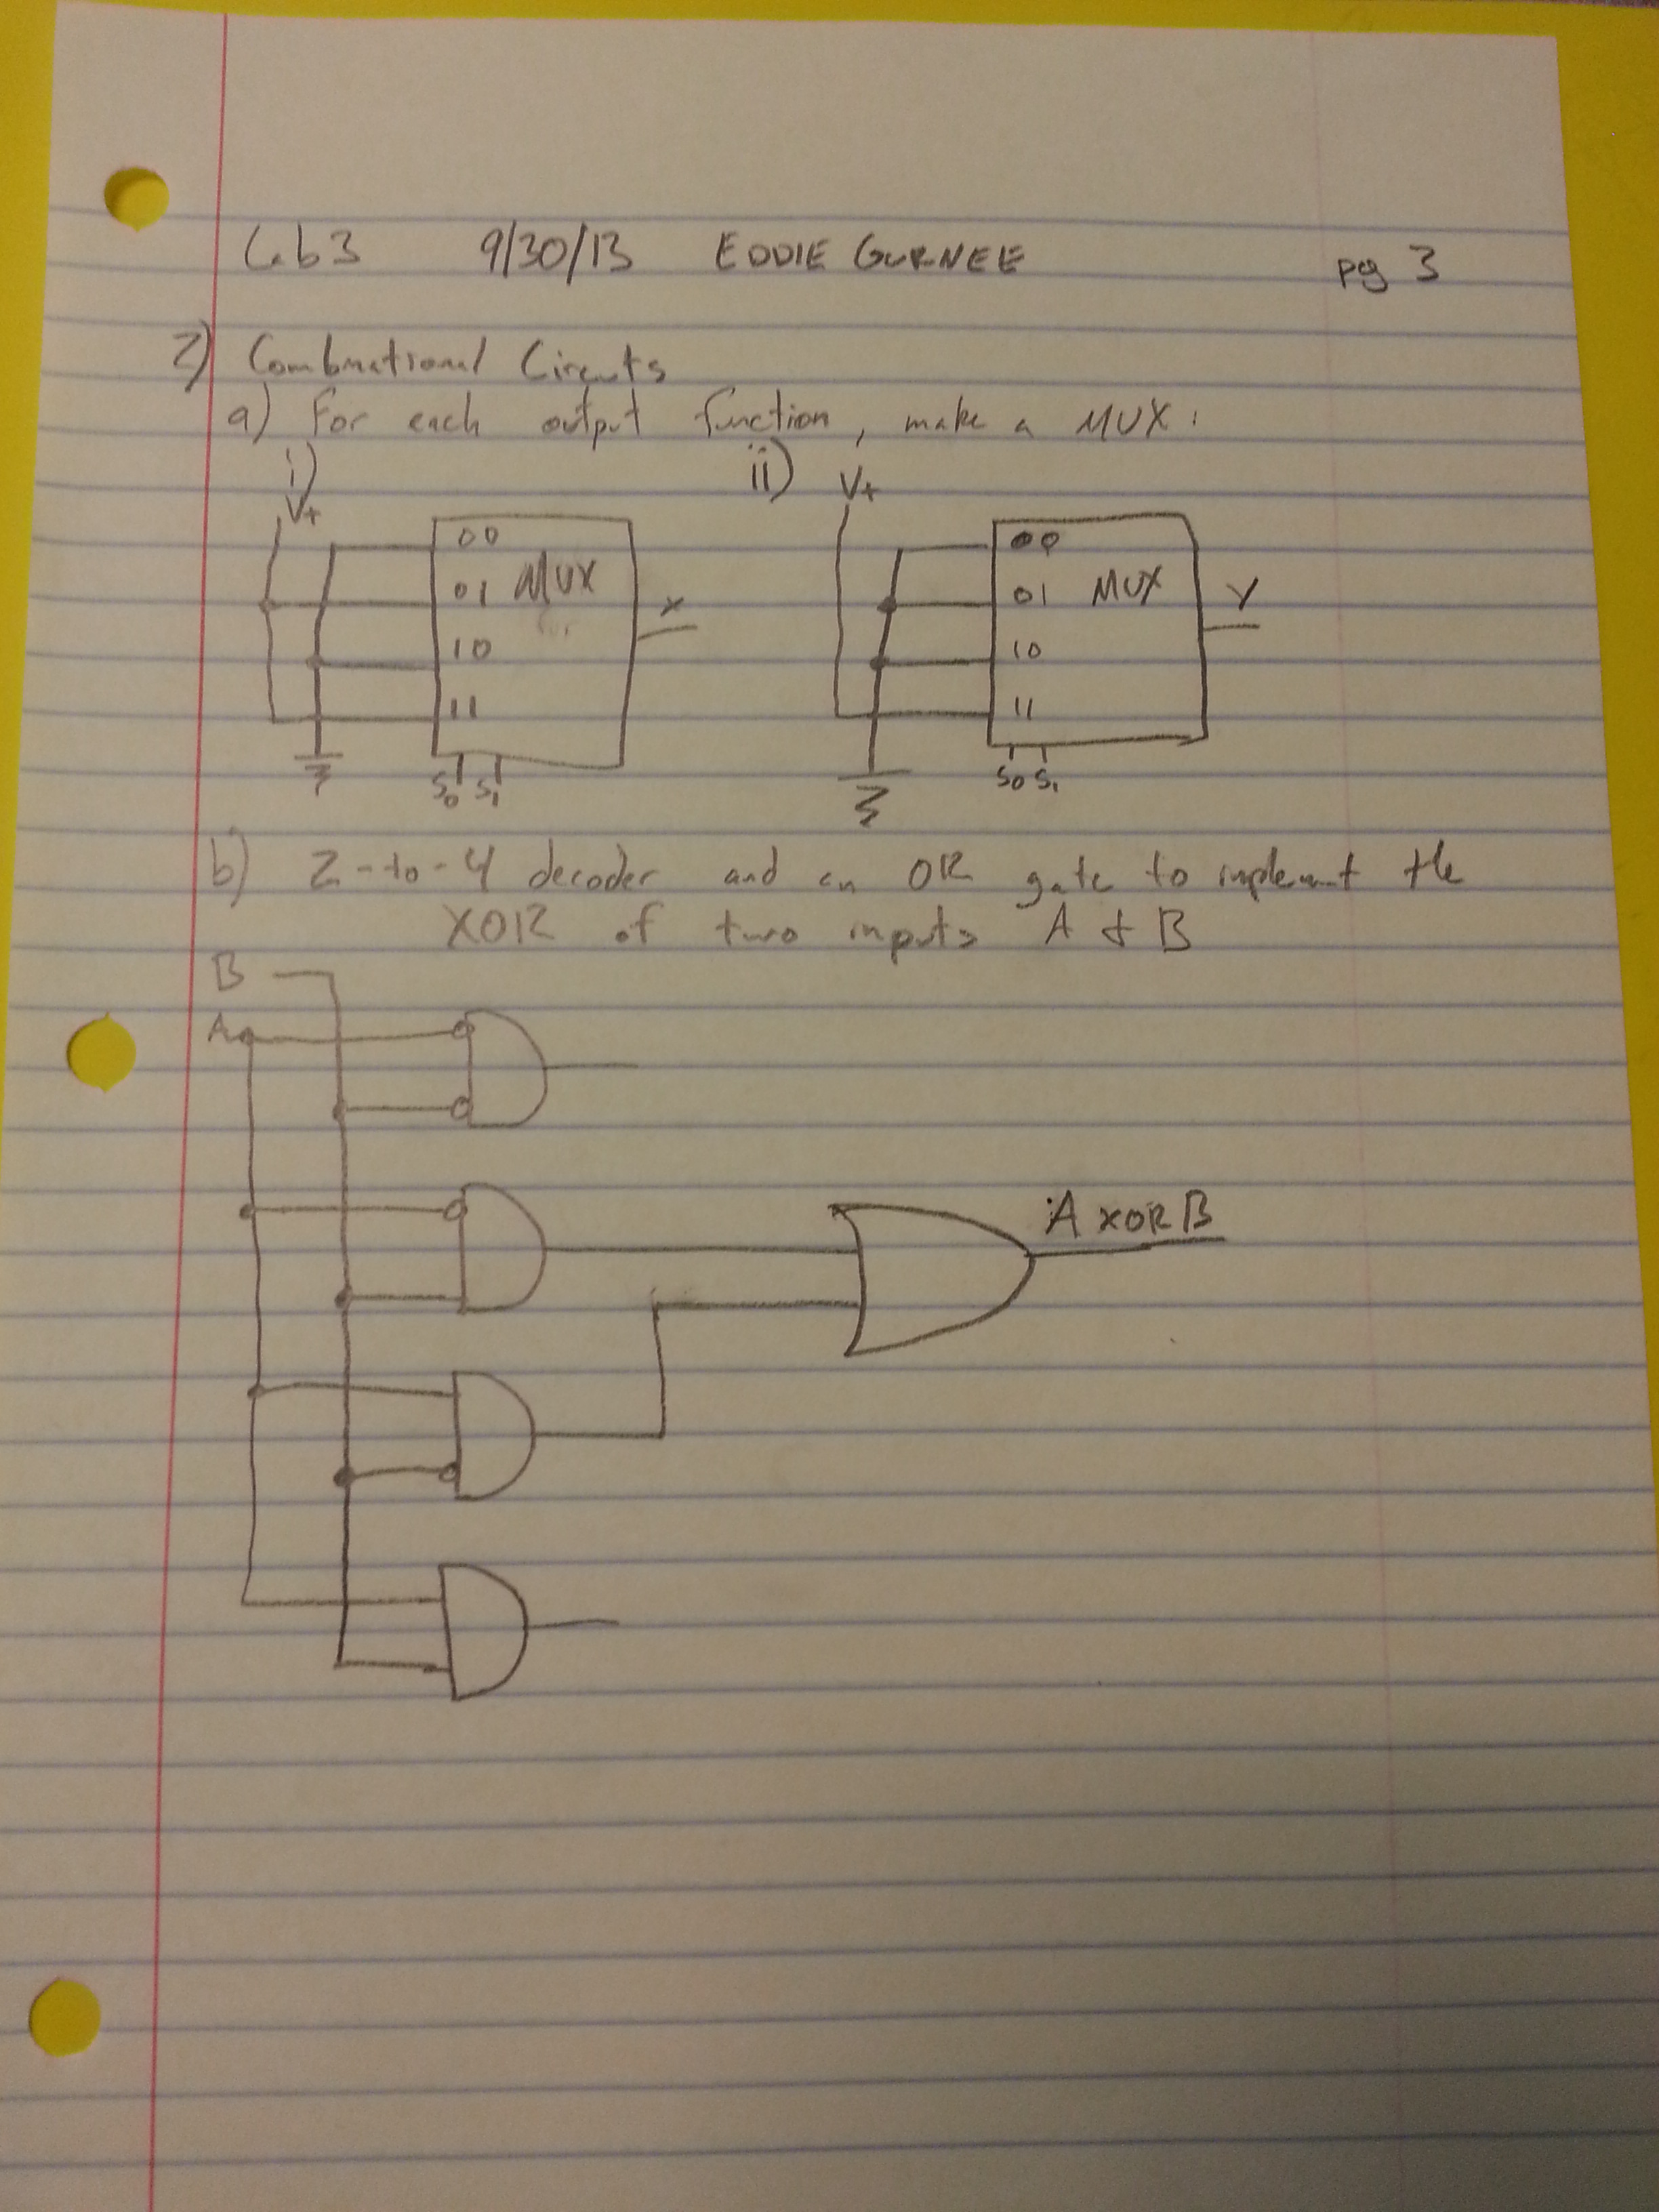 Lab 3 9/30/13 EDDIE GURNEE pg 3
2) Combinational Circuits
a) For each output function, make a MUX:
i) ii)
V+ V+
00 00
01 MUX X 01 MUX Y
10 10
11 11
S0 S1 S0 S1
b) 2-to-4 decoder and an OR gate to implement the
XOR of two inputs A & B
B
A
A XOR B